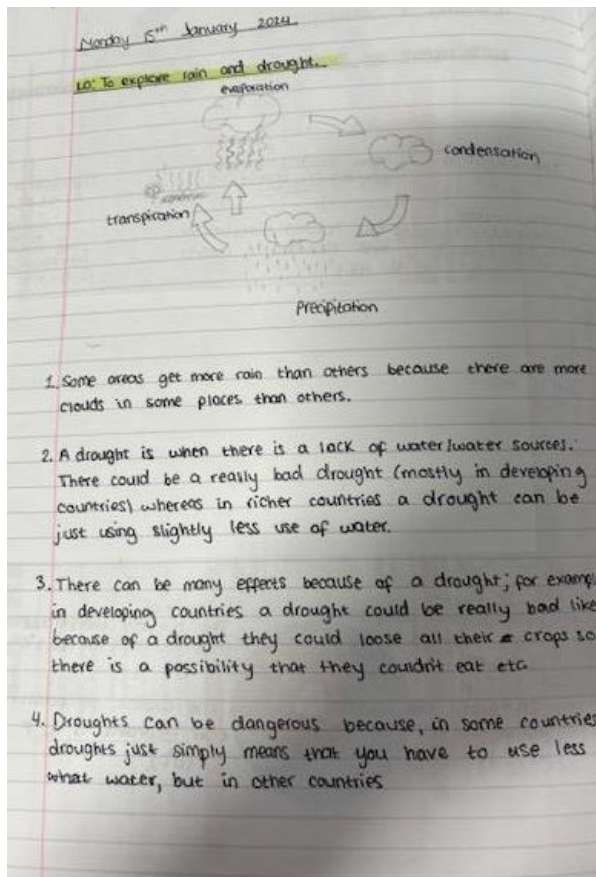 Monday 15th January 2024
LO: To explore rain and drought.
evaporation
condensation
transpiration
Precipitation
1. Some areas get more rain than others because there are more
clouds in some places than others.
2. A drought is when there is a lack of water/water sources.
There could be a really bad drought (mostly in developing
countries) whereas in richer countries a drought can be
just using slightly less use of water.
3. There can be many effects because of a drought; for examp
in developing countries a drought could be really bad like
because of a drought they could loose all their crops so
there is a possibility that they couldn't eat etc
4. Droughts can be dangerous because, in some countries
droughts just simply means that you have to use less
what water, but in other countries